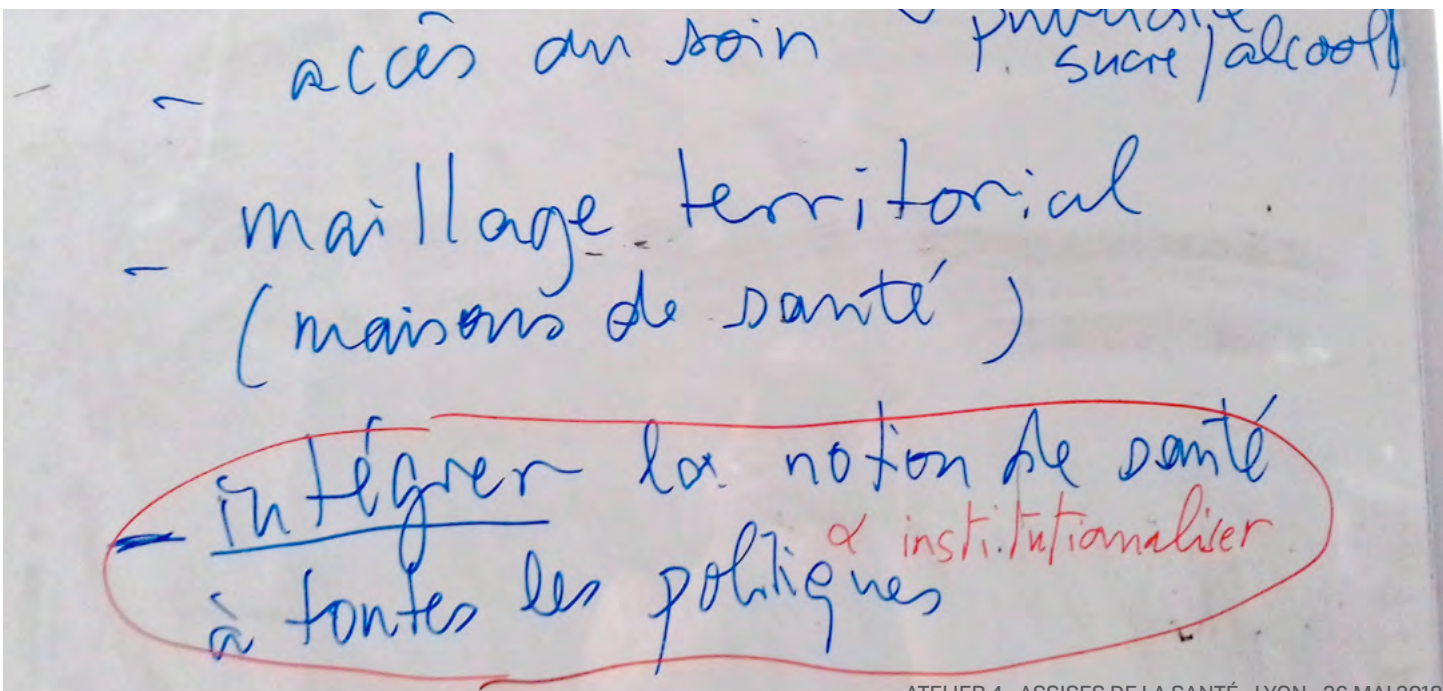 - accès au soin
sucre/alcool
- maillage territorial
(maisons de santé)
- intégrer la notion de santé
& institutionaliser
à toutes les politiques
ATELIER 4 - ASSISES DE LA SANTÉ - LYON - 26 MAI 2018